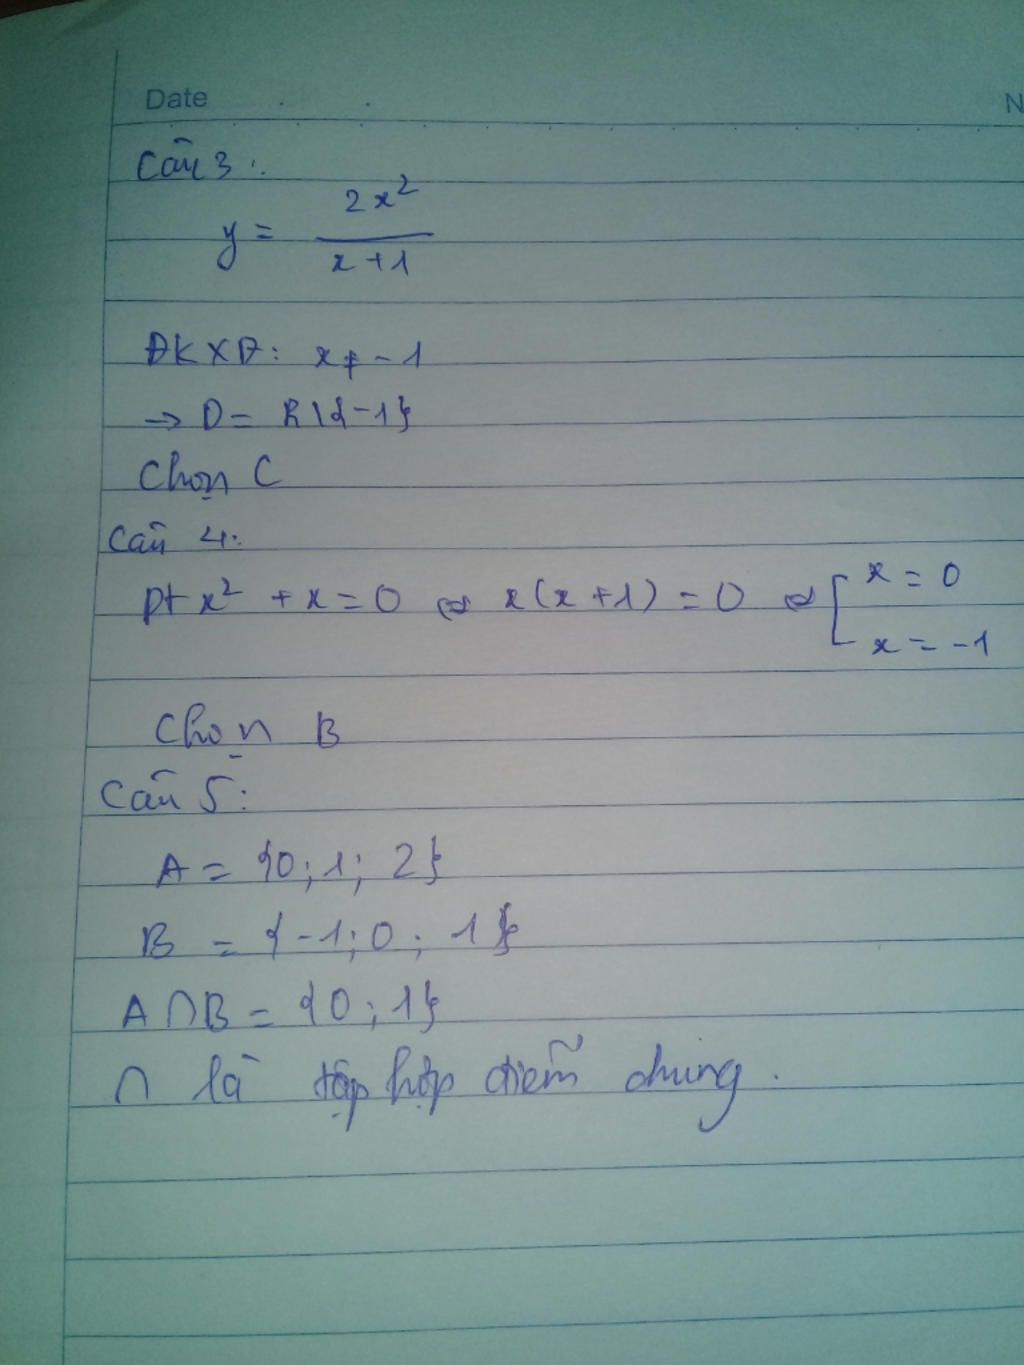 Date
N
Câu 3:
y = 2x²/(x+1)
ĐKXĐ: x ≠ -1
→ D = R\{-1}
Chọn C
Câu 4:
pt x² + x = 0 ⇔ x(x+1) = 0 ⇔ [x = 0
x = -1
Chọn B
Câu 5:
A = {0; 1; 2}
B = {-1; 0; 1}
A∩B = {0; 1}
∩ là tập hợp điểm chung.